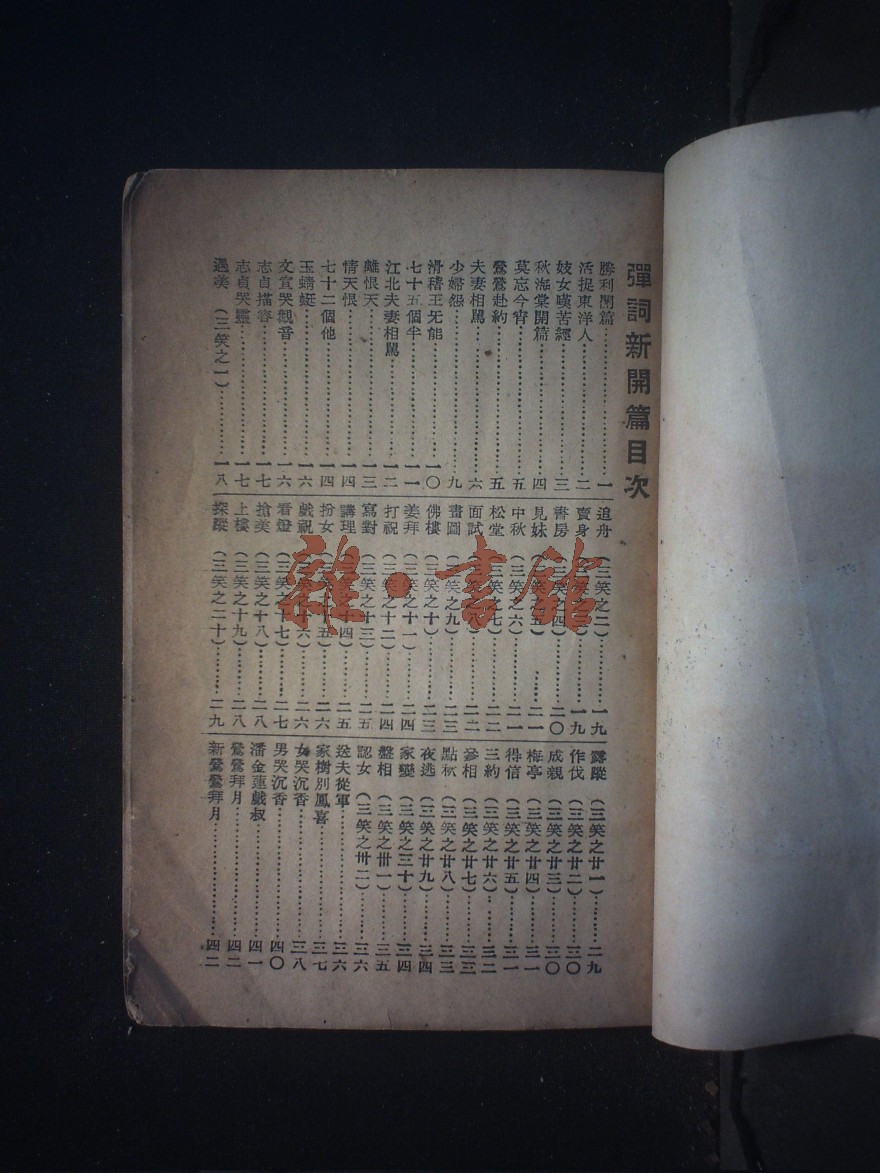 彈詞新開篇目次
勝利開篇…………一
活捉東洋人…………二
妓女嘆苦經…………三
秋海棠開篇…………四
莫忘今宵…………五
鶯鶯赴約…………五
夫妻相罵…………六
少婦怨…………九
滑稽王无能…………一〇
七十五個半…………一一
江北夫妻相罵…………一二
離恨天…………一三
情天恨…………一四
七十二個他…………一四
玉蜻蜓…………一六
文宣哭觀音…………一六
志貞描容…………一七
志貞哭靈…………一七
遇美（三笑之一）…………一八
追舟（三笑之二）…………一九
賣身（三笑之三）…………一九
書房（三笑之四）…………二〇
見妹（三笑之五）…………二一
中秋（三笑之六）…………二一
松堂（三笑之七）…………二二
面試（三笑之八）…………二二
畫圖（三笑之九）…………二三
佛樓（三笑之十）…………二三
姜拜（三笑之十一）…………二四
打祝（三笑之十二）…………二四
寫對（三笑之十三）…………二五
講理（三笑之十四）…………二五
扮女（三笑之十五）…………二六
戲祝（三笑之十六）…………二六
看燈（三笑之十七）…………二七
搶美（三笑之十八）…………二八
上樓（三笑之十九）…………二八
探蹤（三笑之二十）…………二九
露蹤（三笑之廿一）…………二九
作伐（三笑之廿二）…………三〇
成親（三笑之廿三）…………三〇
梅亭（三笑之廿四）…………三一
得信（三笑之廿五）…………三一
三約（三笑之廿六）…………三二
參相（三笑之廿七）…………三三
點秋（三笑之廿八）…………三三
夜逃（三笑之廿九）…………三四
家變（三笑之三十）…………三四
盤相（三笑之卅一）…………三五
認女（三笑之卅二）…………三六
送夫從軍…………三六
家樹別鳳喜…………三七
女哭沉香…………三八
男哭沉香…………四〇
潘金蓮戲叔…………四一
鶯鶯拜月…………四二
新鶯鶯拜月…………四二
雜·書館